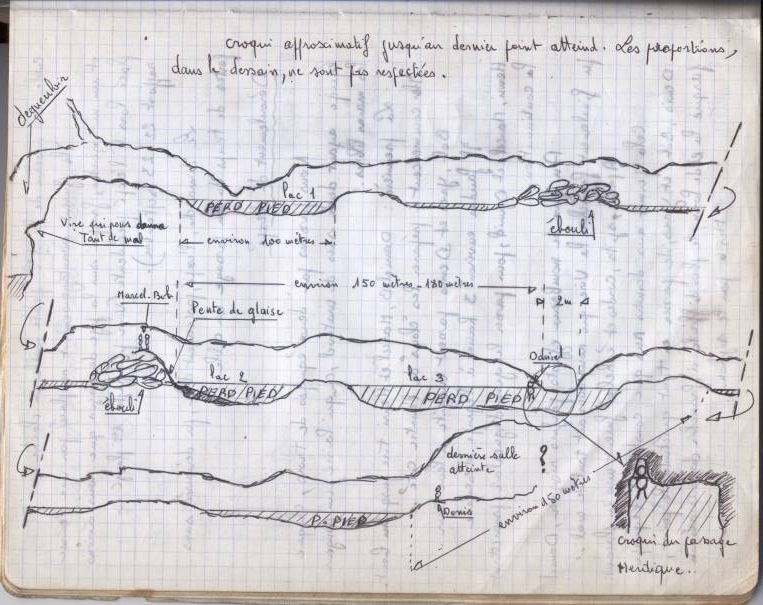 croqui approximatif jusqu'au dernier point atteind. Les proportions,
dans le dessain, ne sont pas respectées.
Lac 1
PERD PIED
ébouli
Vire qui nous donna
Tant de mal
environ 100 mètres
environ 150 mètres - 180 mètres
Marcel. Bob
Pente de glaise
2m
Daniel
Lac 2
Lac 3
PERD PIED
PERD PIED
ébouli
dernière salle
atteinte
?
Denis
P. PIED
environ 150 mètres
croqui du passage
Herétique..